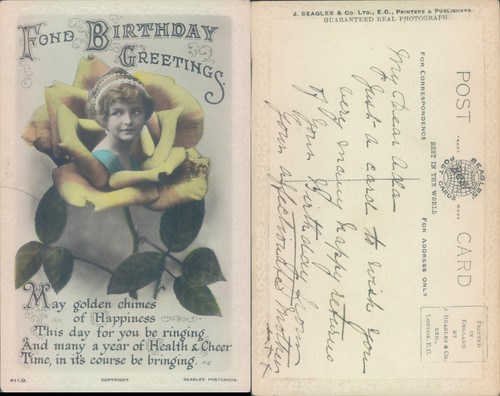 FOND BIRTHDAY
GREETINGS
May golden chimes
of Happiness
This day for you be ringing,
And many a year of Health & Cheer
Time, in it's course be bringing.
411.D.
COPYRIGHT.
BEAGLES POSTCARDS.
J. BEAGLES & CO. LTD., E.C., PRINTERS & PUBLISHERS.
GUARANTEED REAL PHOTOGRAPH.
POST CARD
TRADE MARK
BEAGLES
POST CARDS
BEST IN THE WORLD
FOR CORRESPONDENCE
FOR ADDRESS ONLY
PRINTED
IN
ENGLAND
BY
J. BEAGLES & CO.
LTD.,
LONDON, E.C.
My Dear Ada
Just a card to wish you
very many happy returns
of your Birthday from
your affectionate Mother
xxx